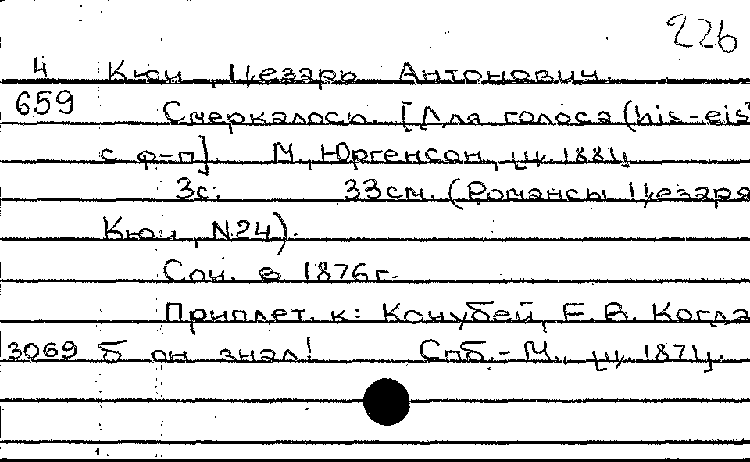 226
4 Кюи, Цезарь Антонович.
659 Смеркалось. [Для голоса (his-eis)
с ф-п]. М., Юргенсон, ц. 1881
3с. 33см. (Романсы Цезаря
Кюи, N24).
Соч. в 1876г.
Приплет. к: Кочубей, Е. В. Когда
3069 б он знал! Спб.-М., ц. 1871.